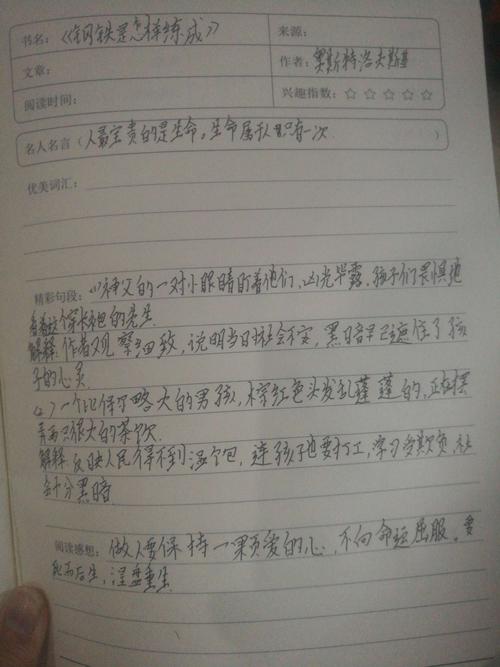 书名：《钢铁是怎样练成》
来源：
文章：
作者：奥斯特洛夫斯基
阅读时间：
兴趣指数：☆ ☆ ☆ ☆ ☆
名人名言（人最宝贵的是生命。生命属于人只有一次）
优美词汇：
精彩句段：(1)神父的一对小眼睛盯着他们，凶光毕露，孩子们畏惧地
看着这个穿长袍的先生
解释：作者观察细致，说明当时社会不安，黑暗早已遮住了孩
子的心灵
(2)一个比保尔略大的男孩，棕红色头发乱蓬蓬的，正在摆
弄两只很大的茶炊
解释：反映人民得不到温饱，连孩子也要打工，社
会十分黑暗
阅读感想：做人要保持一颗爱的心，不向命运屈服。要
死而后生，涅盘重生